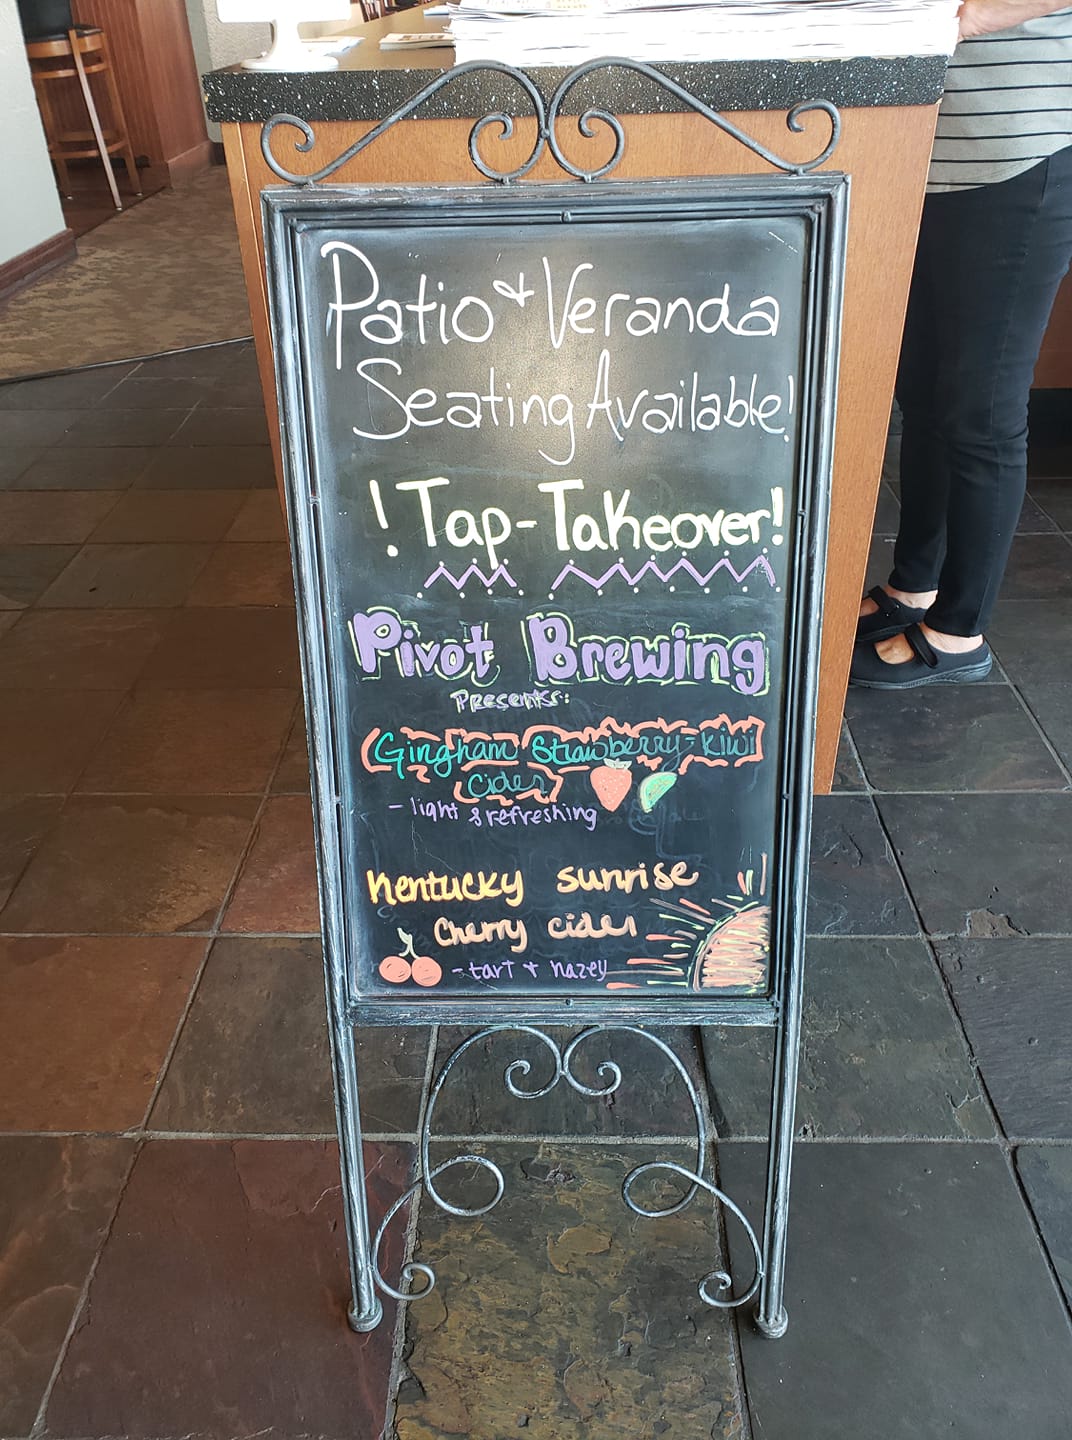 Patio & Veranda
Seating Available!
! Tap-Takeover!
Pivot Brewing
Presents:
Gingham Strawberry-Kiwi
Cider
- light & refreshing
Kentucky sunrise
Cherry cider
- tart + hazey